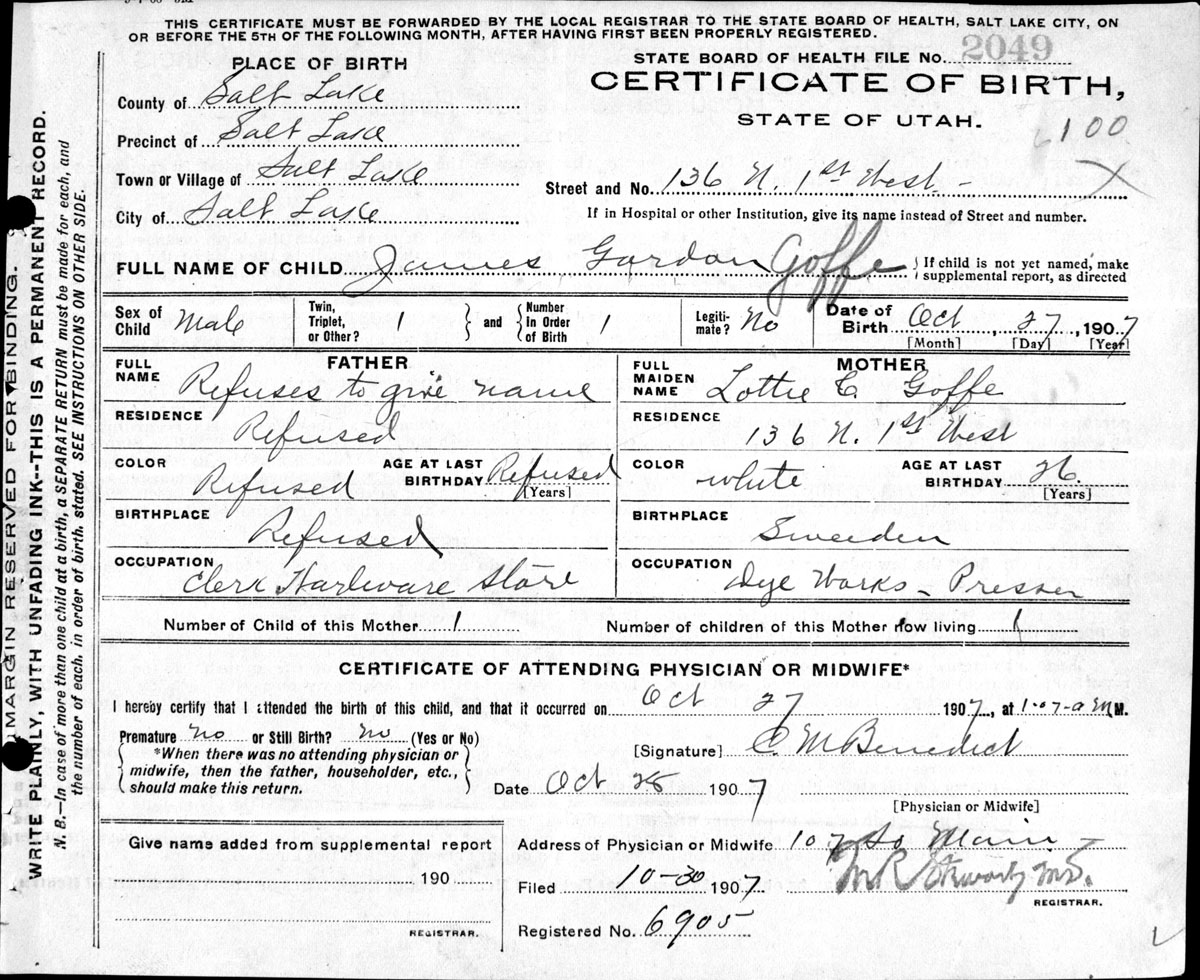 THIS CERTIFICATE MUST BE FORWARDED BY THE LOCAL REGISTRAR TO THE STATE BOARD OF HEALTH, SALT LAKE CITY, ON
OR BEFORE THE 5TH OF THE FOLLOWING MONTH, AFTER HAVING FIRST BEEN PROPERLY REGISTERED.
MARGIN RESERVED FOR BINDING.
WRITE PLAINLY, WITH UNFADING INK--THIS IS A PERMANENT RECORD.
N. B.—In case of more than one child at a birth, a SEPARATE RETURN must be made for each, and
the number of each, in order of birth, stated. SEE INSTRUCTIONS ON OTHER SIDE.
PLACE OF BIRTH
County of Salt Lake
Precinct of Salt Lake
Town or Village of Salt Lake
City of Salt Lake
STATE BOARD OF HEALTH FILE No. 2049
CERTIFICATE OF BIRTH,
STATE OF UTAH.
100
Street and No. 136 N. 1st West
If in Hospital or other Institution, give its name instead of Street and number.
FULL NAME OF CHILD James Gordon Goffe { If child is not yet named, make
supplemental report, as directed
Sex of Child Male
Twin, Triplet, or Other? 1 } and { Number In Order of Birth 1
Legitimate? No
Date of Birth Oct, 27, 1907
[Month] [Day] [Year]
FATHER
FULL NAME Refuses to give name
RESIDENCE Refused
COLOR Refused AGE AT LAST BIRTHDAY Refused
[Years]
BIRTHPLACE Refused
OCCUPATION Clerk Hardware Store
MOTHER
FULL MAIDEN NAME Lottie C Goffe
RESIDENCE 136 N. 1st West
COLOR white AGE AT LAST BIRTHDAY 26
[Years]
BIRTHPLACE Sweeden
OCCUPATION Dye Works - Presser
Number of Child of this Mother 1
Number of children of this Mother now living 1
CERTIFICATE OF ATTENDING PHYSICIAN OR MIDWIFE*
I hereby certify that I attended the birth of this child, and that it occurred on Oct 27 1907, at 1-07-a M M.
Premature No or Still Birth? No (Yes or No)
*When there was no attending physician or
midwife, then the father, householder, etc.,
should make this return.
[Signature] C. M Benedict
Date Oct 28 1907
[Physician or Midwife]
Give name added from supplemental report
190
REGISTRAR.
Address of Physician or Midwife 107 So Main
Filed 10-30 1907
REGISTRAR.
Registered No. 6905